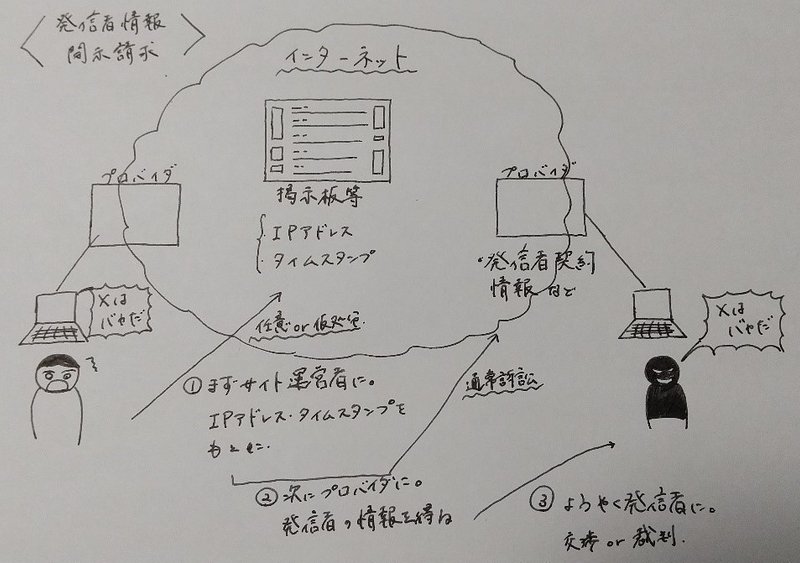 発信者情報
開示請求
インターネット
プロバイダ
プロバイダ
掲示板等
IPアドレス
タイムスタンプ
・発信者契約
情報など
Xは
バカだ
Xは
バカだ
任意or仮処分
①まずサイト運営者に。
IPアドレス・タイムスタンプを
もとに
通常訴訟
②次にプロバイダに。
発信者の情報を得
③ようやく発信者に。
交渉or裁判.